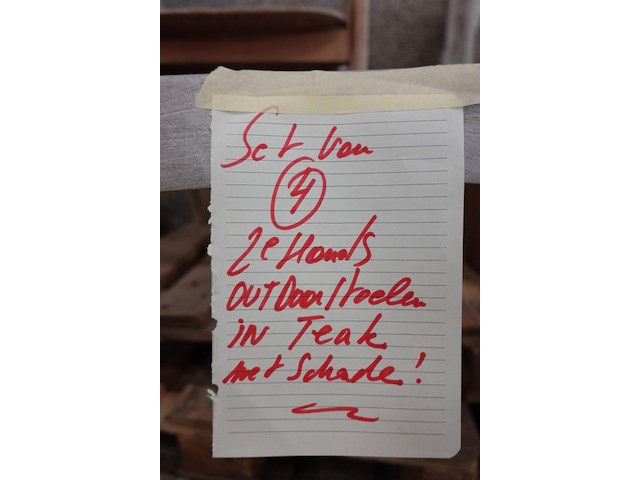 Set van
4
2e Hands
OUTDoor stoelen
iN Teak
met Schade!